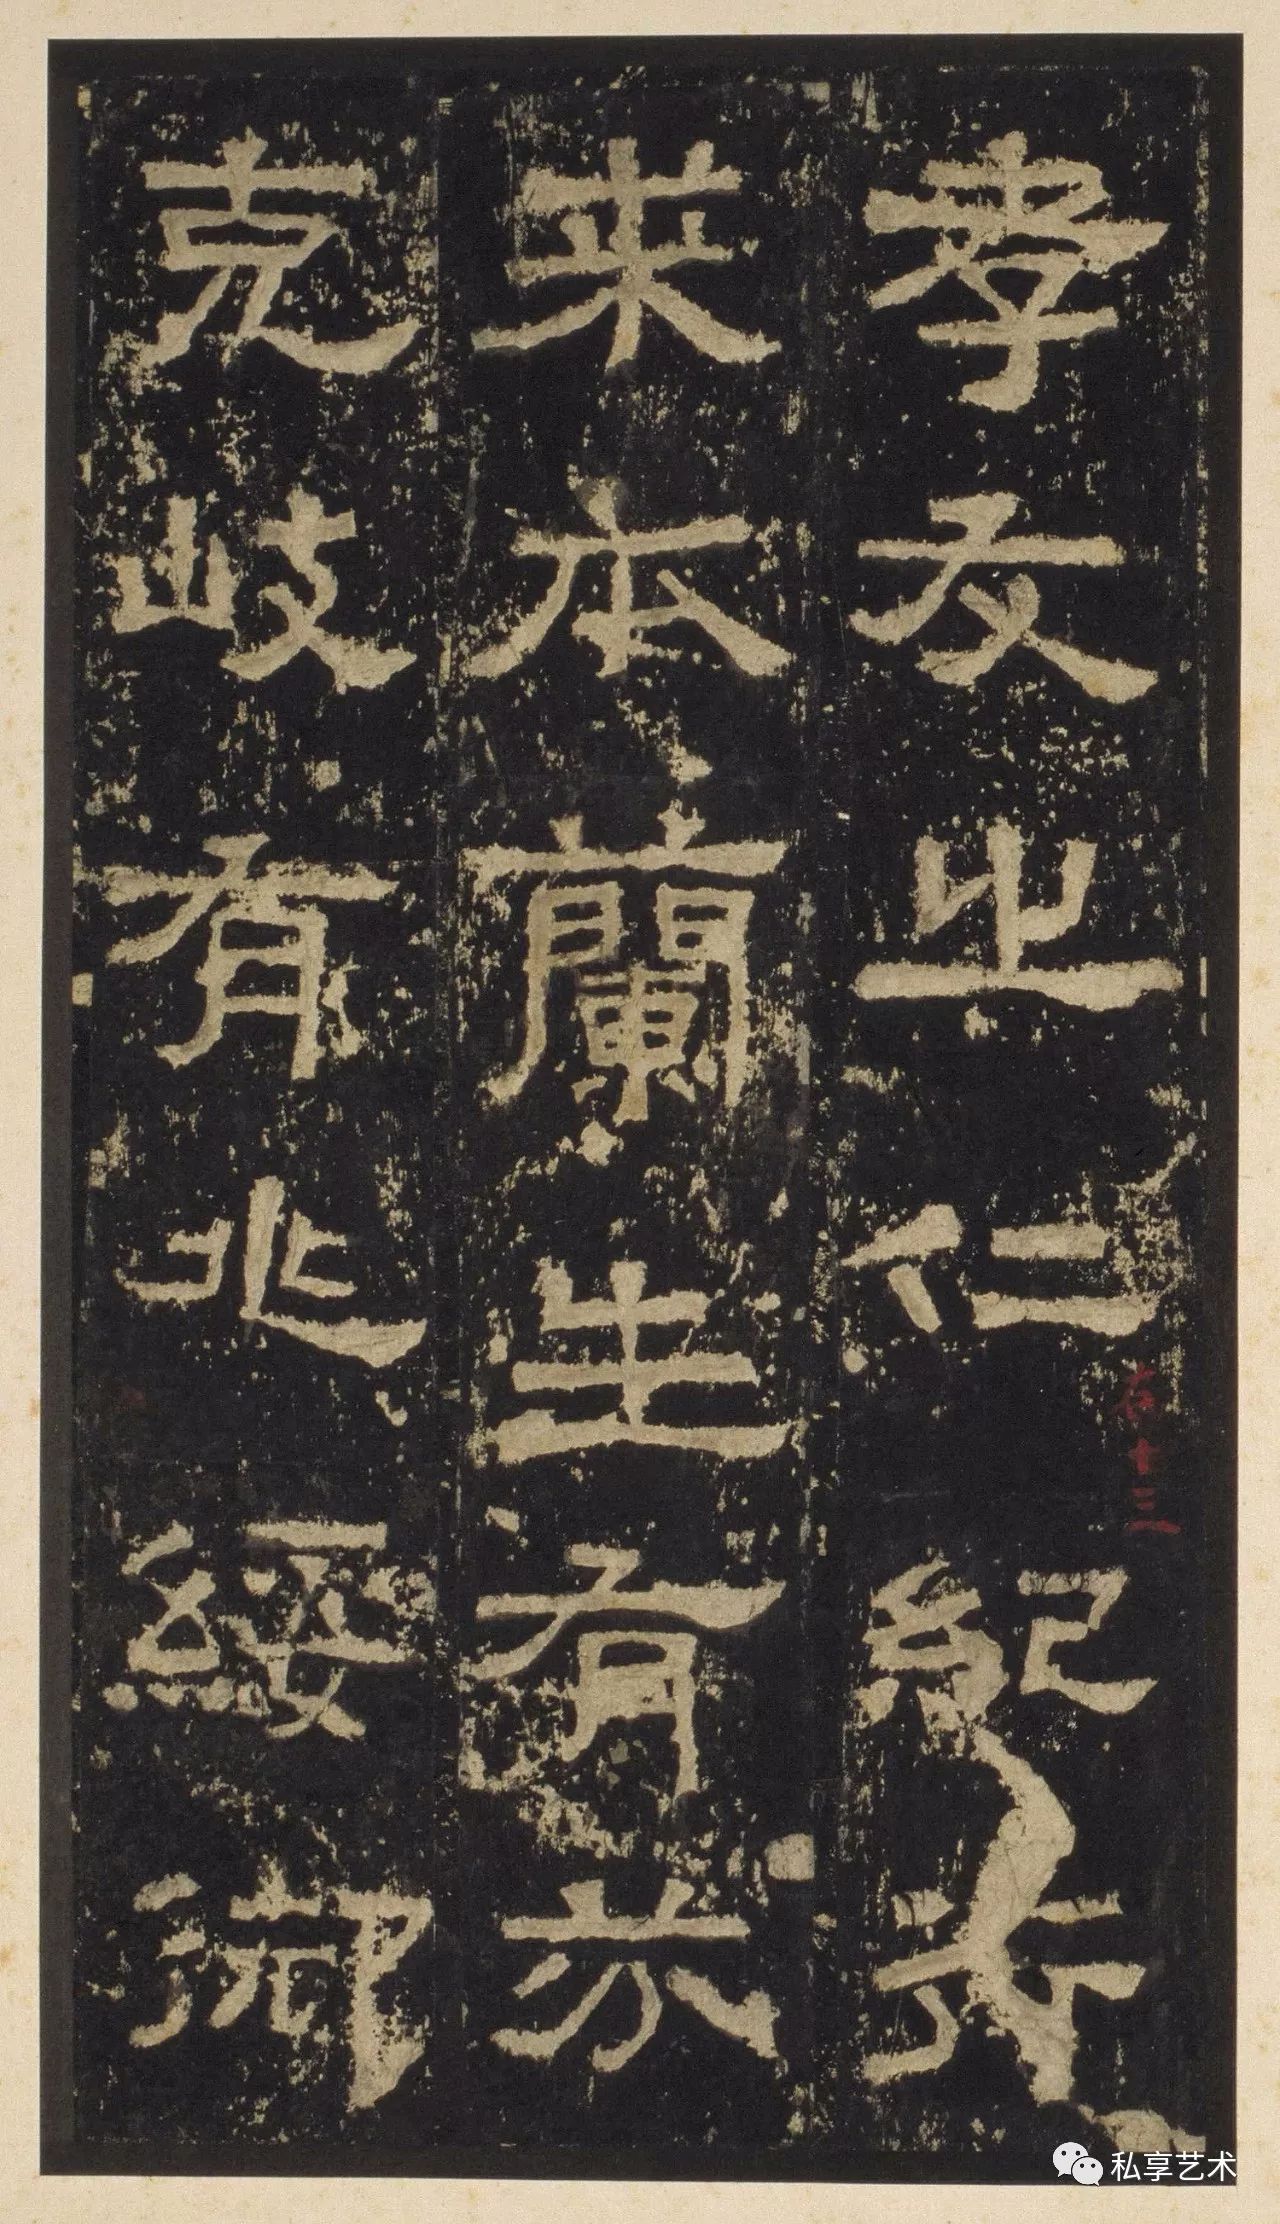 孝友之仁紀行
來本蘭生有芬
克岐有兆綏御
十三
私享艺术